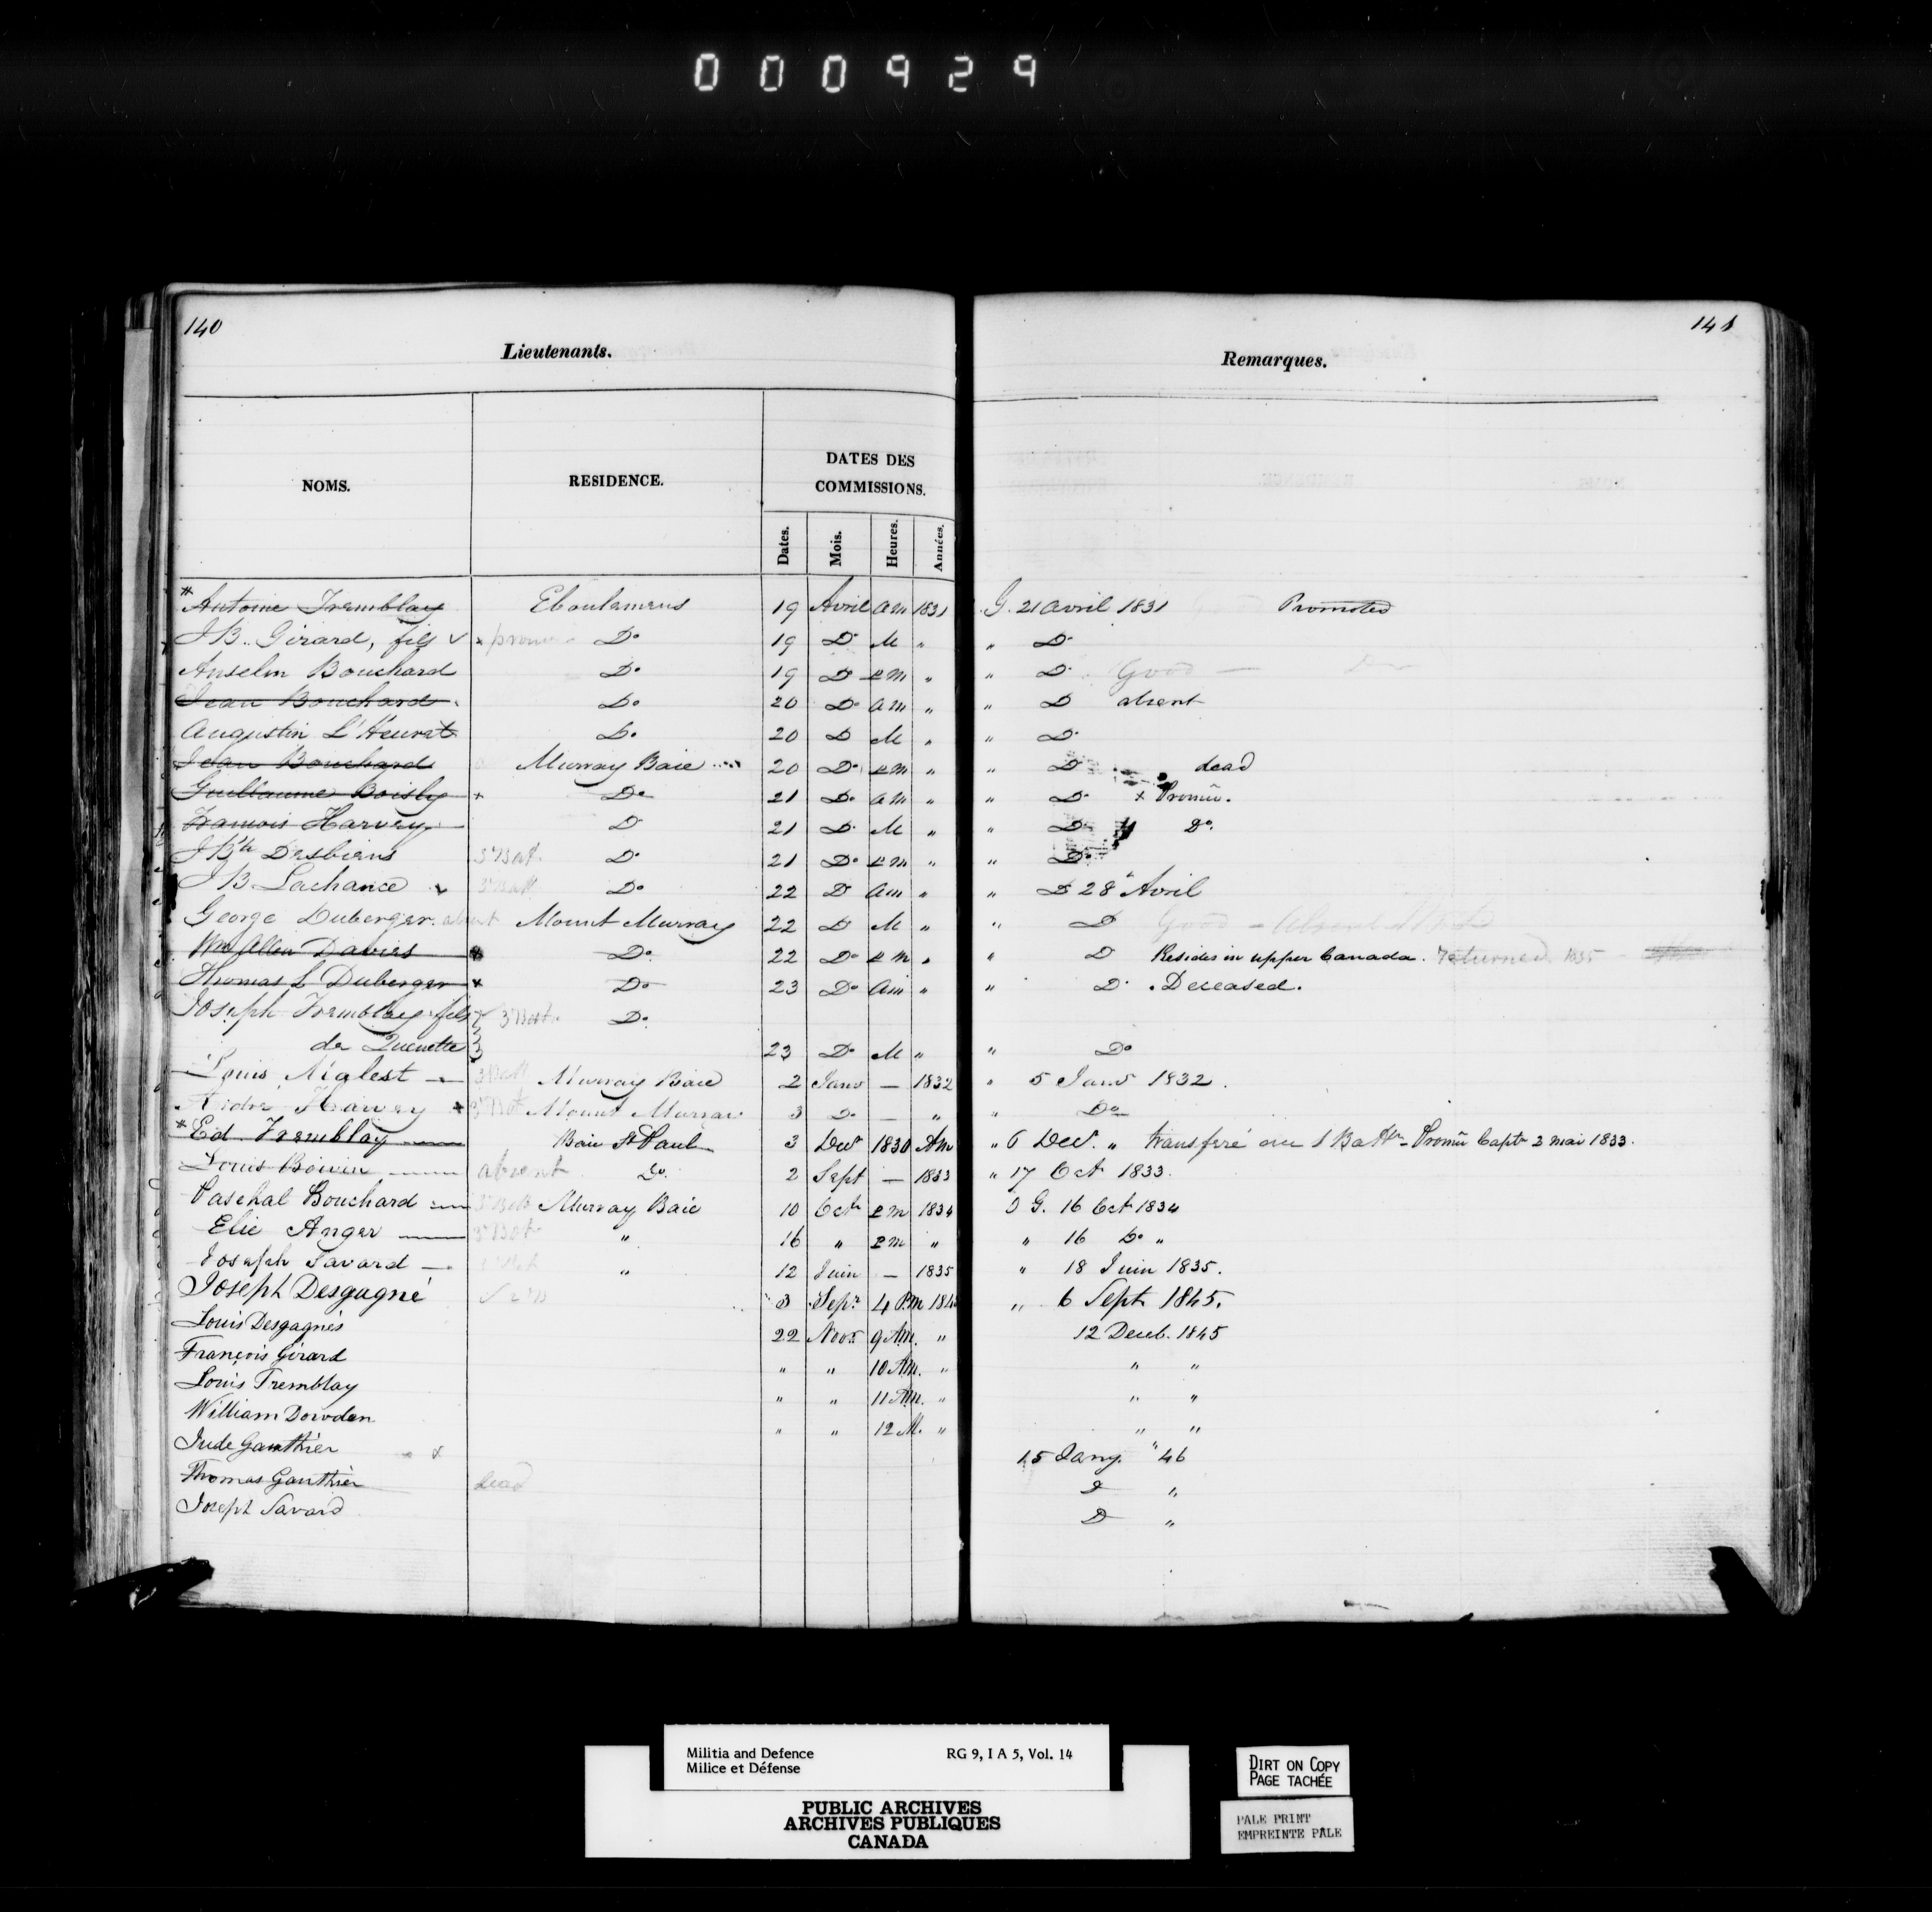 000929
140
Lieutenants.
NOMS. RESIDENCE. DATES DES COMMISSIONS.
Dates. Mois. Heures. Années.
Antoine Tremblay Eboulemens 19 Avril am 1831
J B. Girard, fils Do 19 Do M "
Anselm Bouchard Do 19 Do PM "
Jean Bouchard Do 20 Do am "
Augustin L'Heuret Do 20 D M "
Jean Bouchard Murray Baie 20 Do PM "
Guillaume Boisly Do 21 Do am "
Francois Harvey D 21 Do M "
J Bte Desbiens 3 Bat. Do 21 Do PM "
J B Lachance 3 Batt Do 22 D am "
George Duberger absent Mount Murray 22 D M "
Wm Allen Davies Do 22 Do PM "
Thomas L Duberger Do 23 Do am "
Joseph Tremblay fils 3 Batt. Do
de Quenette 23 Do M "
Louis 3 Batt Murray Baie 2 Janv — 1832
Harvey 3 Bat Mount Murray 3 Do — "
Ed Tremblay Baie St Paul 3 Decr 1830 Am
Louis Boivin absent Do 2 Sept — 1833
Paschal Bouchard 3 Batt Murray Baie 10 Oct PM 1834
Elie Anger 3 Bat " 16 " PM "
Joseph Savard " 12 Juin — 1835
Joseph Desgagné 3 Sepr. 4 P.M 184
Louis Desgagnés 22 Novr. 9 AM. "
François Girard " " 10 AM. "
Louis Tremblay " " 11 AM. "
William Dowden " " 12 M. "
Jude Gauthier x
Thomas Gauthier dead
Joseph Savard
141
Remarques.
G. 21 avril 1831 Promoted
" Do
" Do Good —
" D absent
" Do
" D dead
" D x Promu.
" D Do.
" Do
" D 28 Avril
" D Good - Absent
" D Resides in upper Canada. returned 1835
" D. Deceased.
" Do
" 5 Janv 1832.
" Do
" 6 Decr. " transferé au 1 Battn - Promu Captn 2 mai 1833.
" 17 Oct 1833.
G. 16 Oct 1834
" 16 Do "
" 18 Juin 1835.
" 6 Sept 1845.
12 Deceb. 1845
" "
" "
" "
15 Jany " 46
D "
D "
Militia and Defence
Milice et Défense
RG 9, I A 5, Vol. 14
PUBLIC ARCHIVES
ARCHIVES PUBLIQUES
CANADA
DIRT ON COPY
PAGE TACHÉE
PALE PRINT
EMPREINTE PÂLE